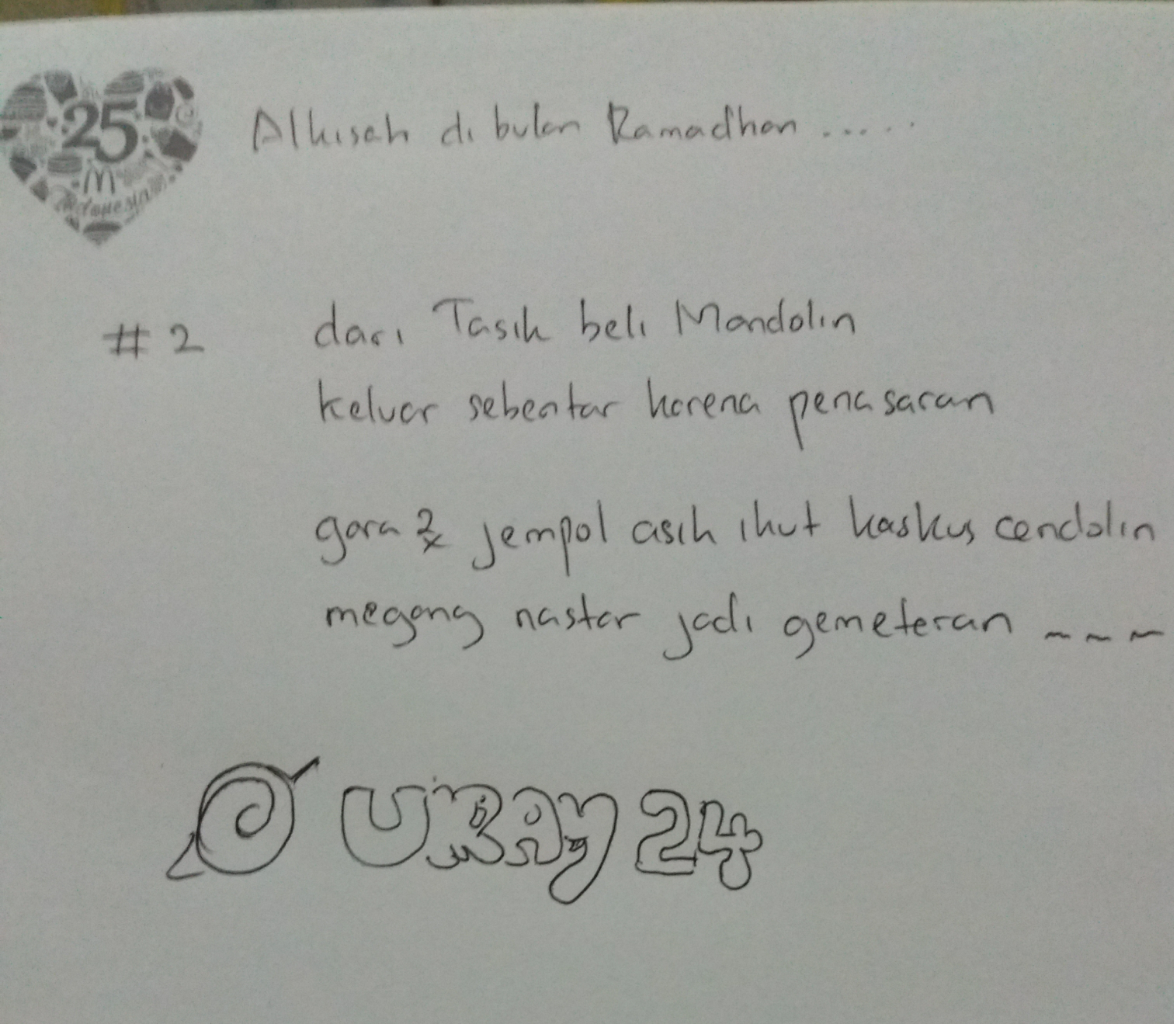 25
M
Indonesia
Alkisah di bulan Ramadhan .....
#2
dari Tasik beli Mandolin
keluar sebentar karena penasaran
gara2x jempol asik ikut kaskus cendolin
megang nastar jadi gemeteran ~~~
URAY 24